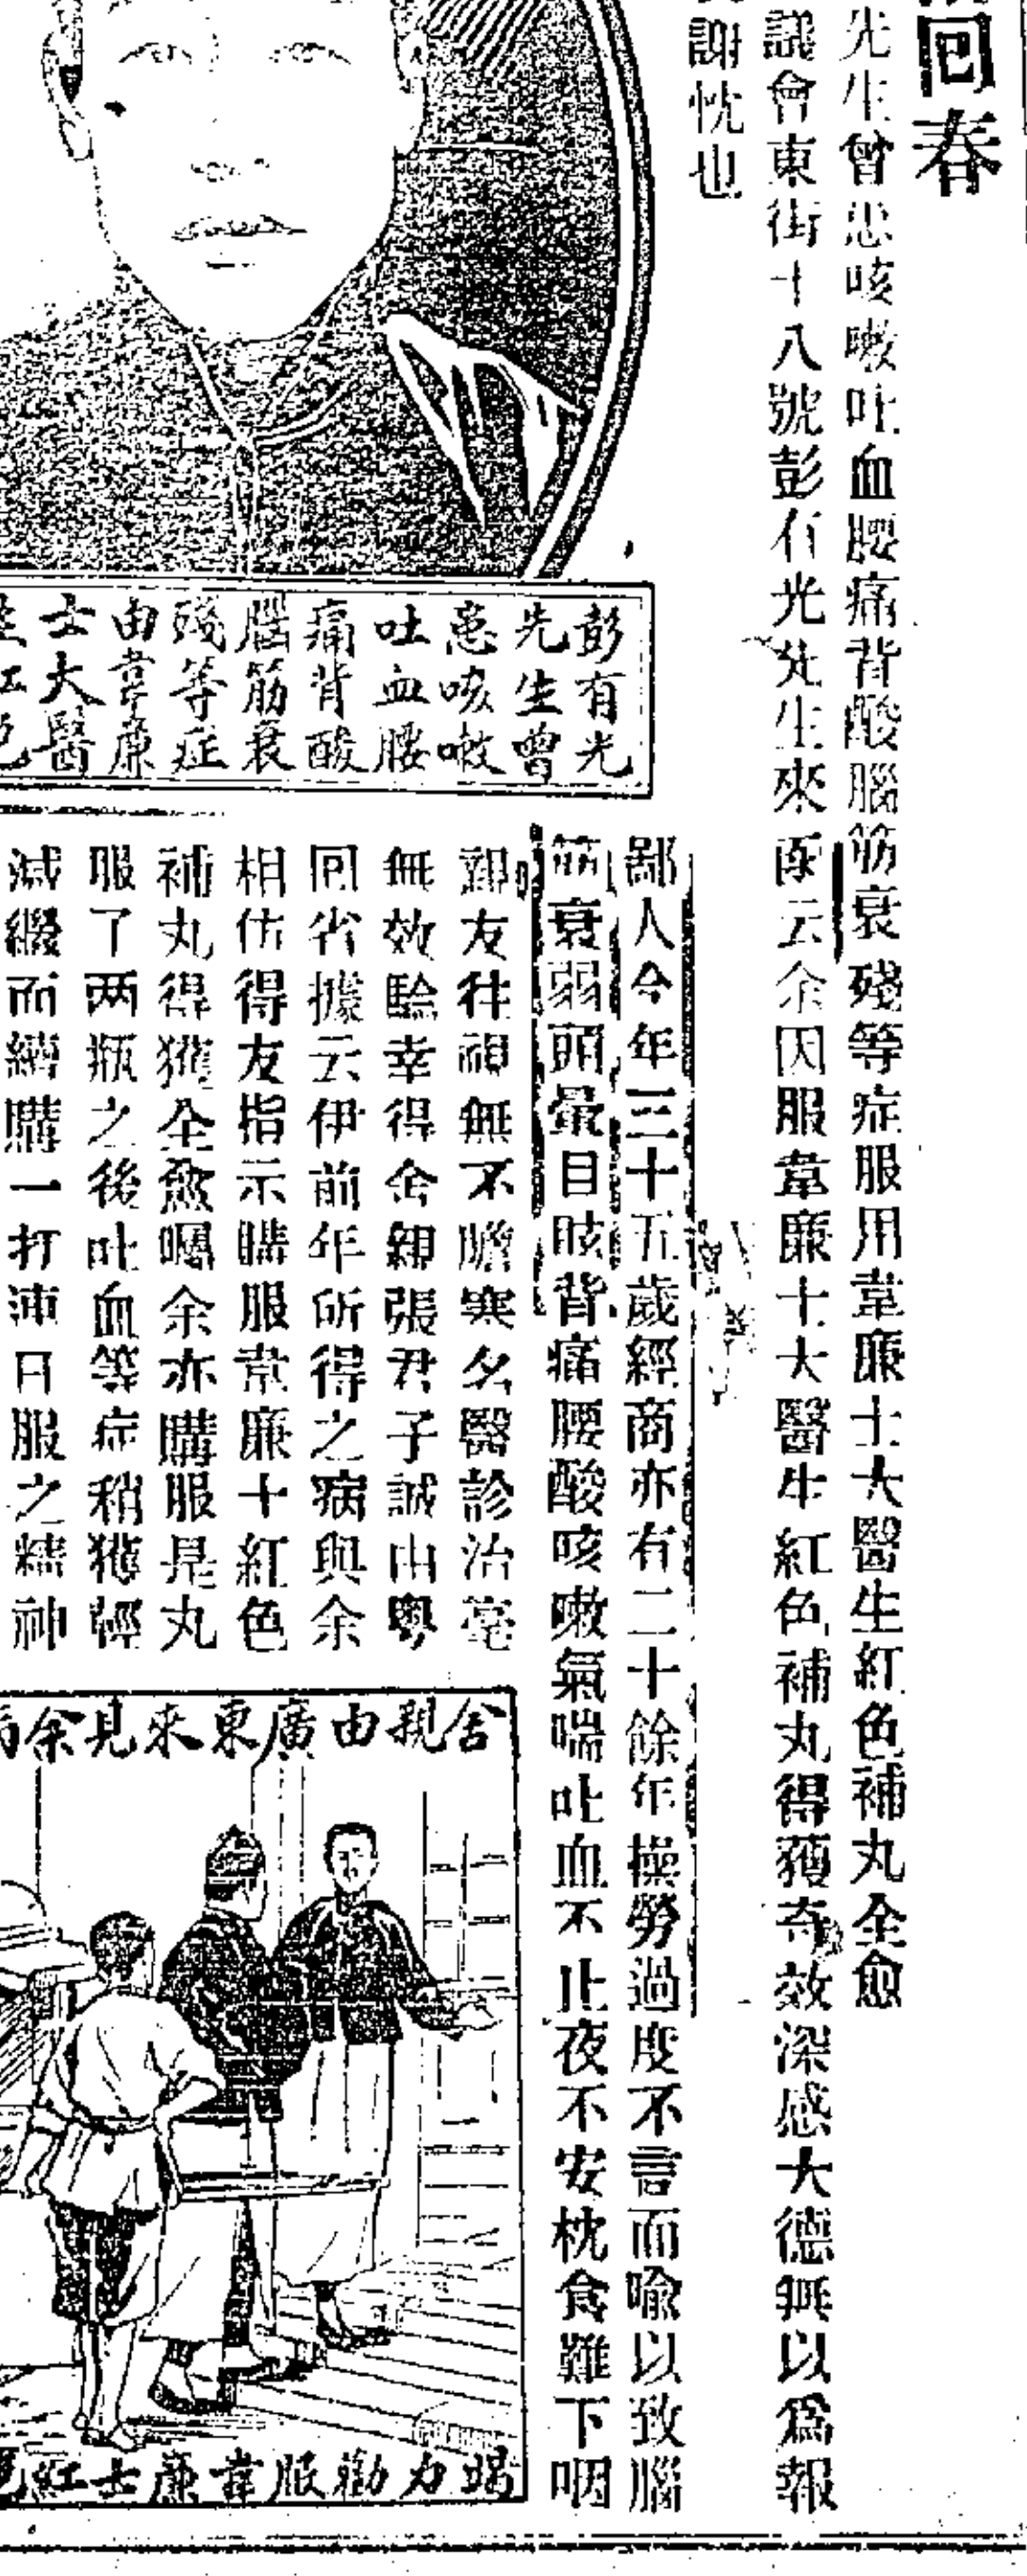 回春
先生曾患咳嗽吐血腰痛背酸腦筋衰殘等症服用韋廉士大醫生紅色補丸全愈
議會東街十八號彭有光先生來函云余因服韋廉士大醫生紅色補丸得獲奇效深感大德無以為報
謝忱也
彭有光
先生曾
患咳嗽
吐血腰
痛背酸
腦筋衰
殘等症
由韋廉
士大醫
生紅色
鄙人今年三十五歲經商亦有二十餘年操勞過度不言而喻以致腦
筋衰弱頭暈目眩背痛腰酸咳嗽氣喘吐血不止夜不安枕食難下咽
鄰友往視無不膽寒名醫診治毫
無效驗幸得舍親張君子誠由粵
回省據云伊前年所得之病與余
相仿得友指示購服韋廉士紅色
補丸得獲全愈囑余亦購服是丸
服了两瓶之後吐血等症稍獲輕
減繼而續購一打連日服之精神
舍親由廣東來見余
竭力勸服韋廉士紅色